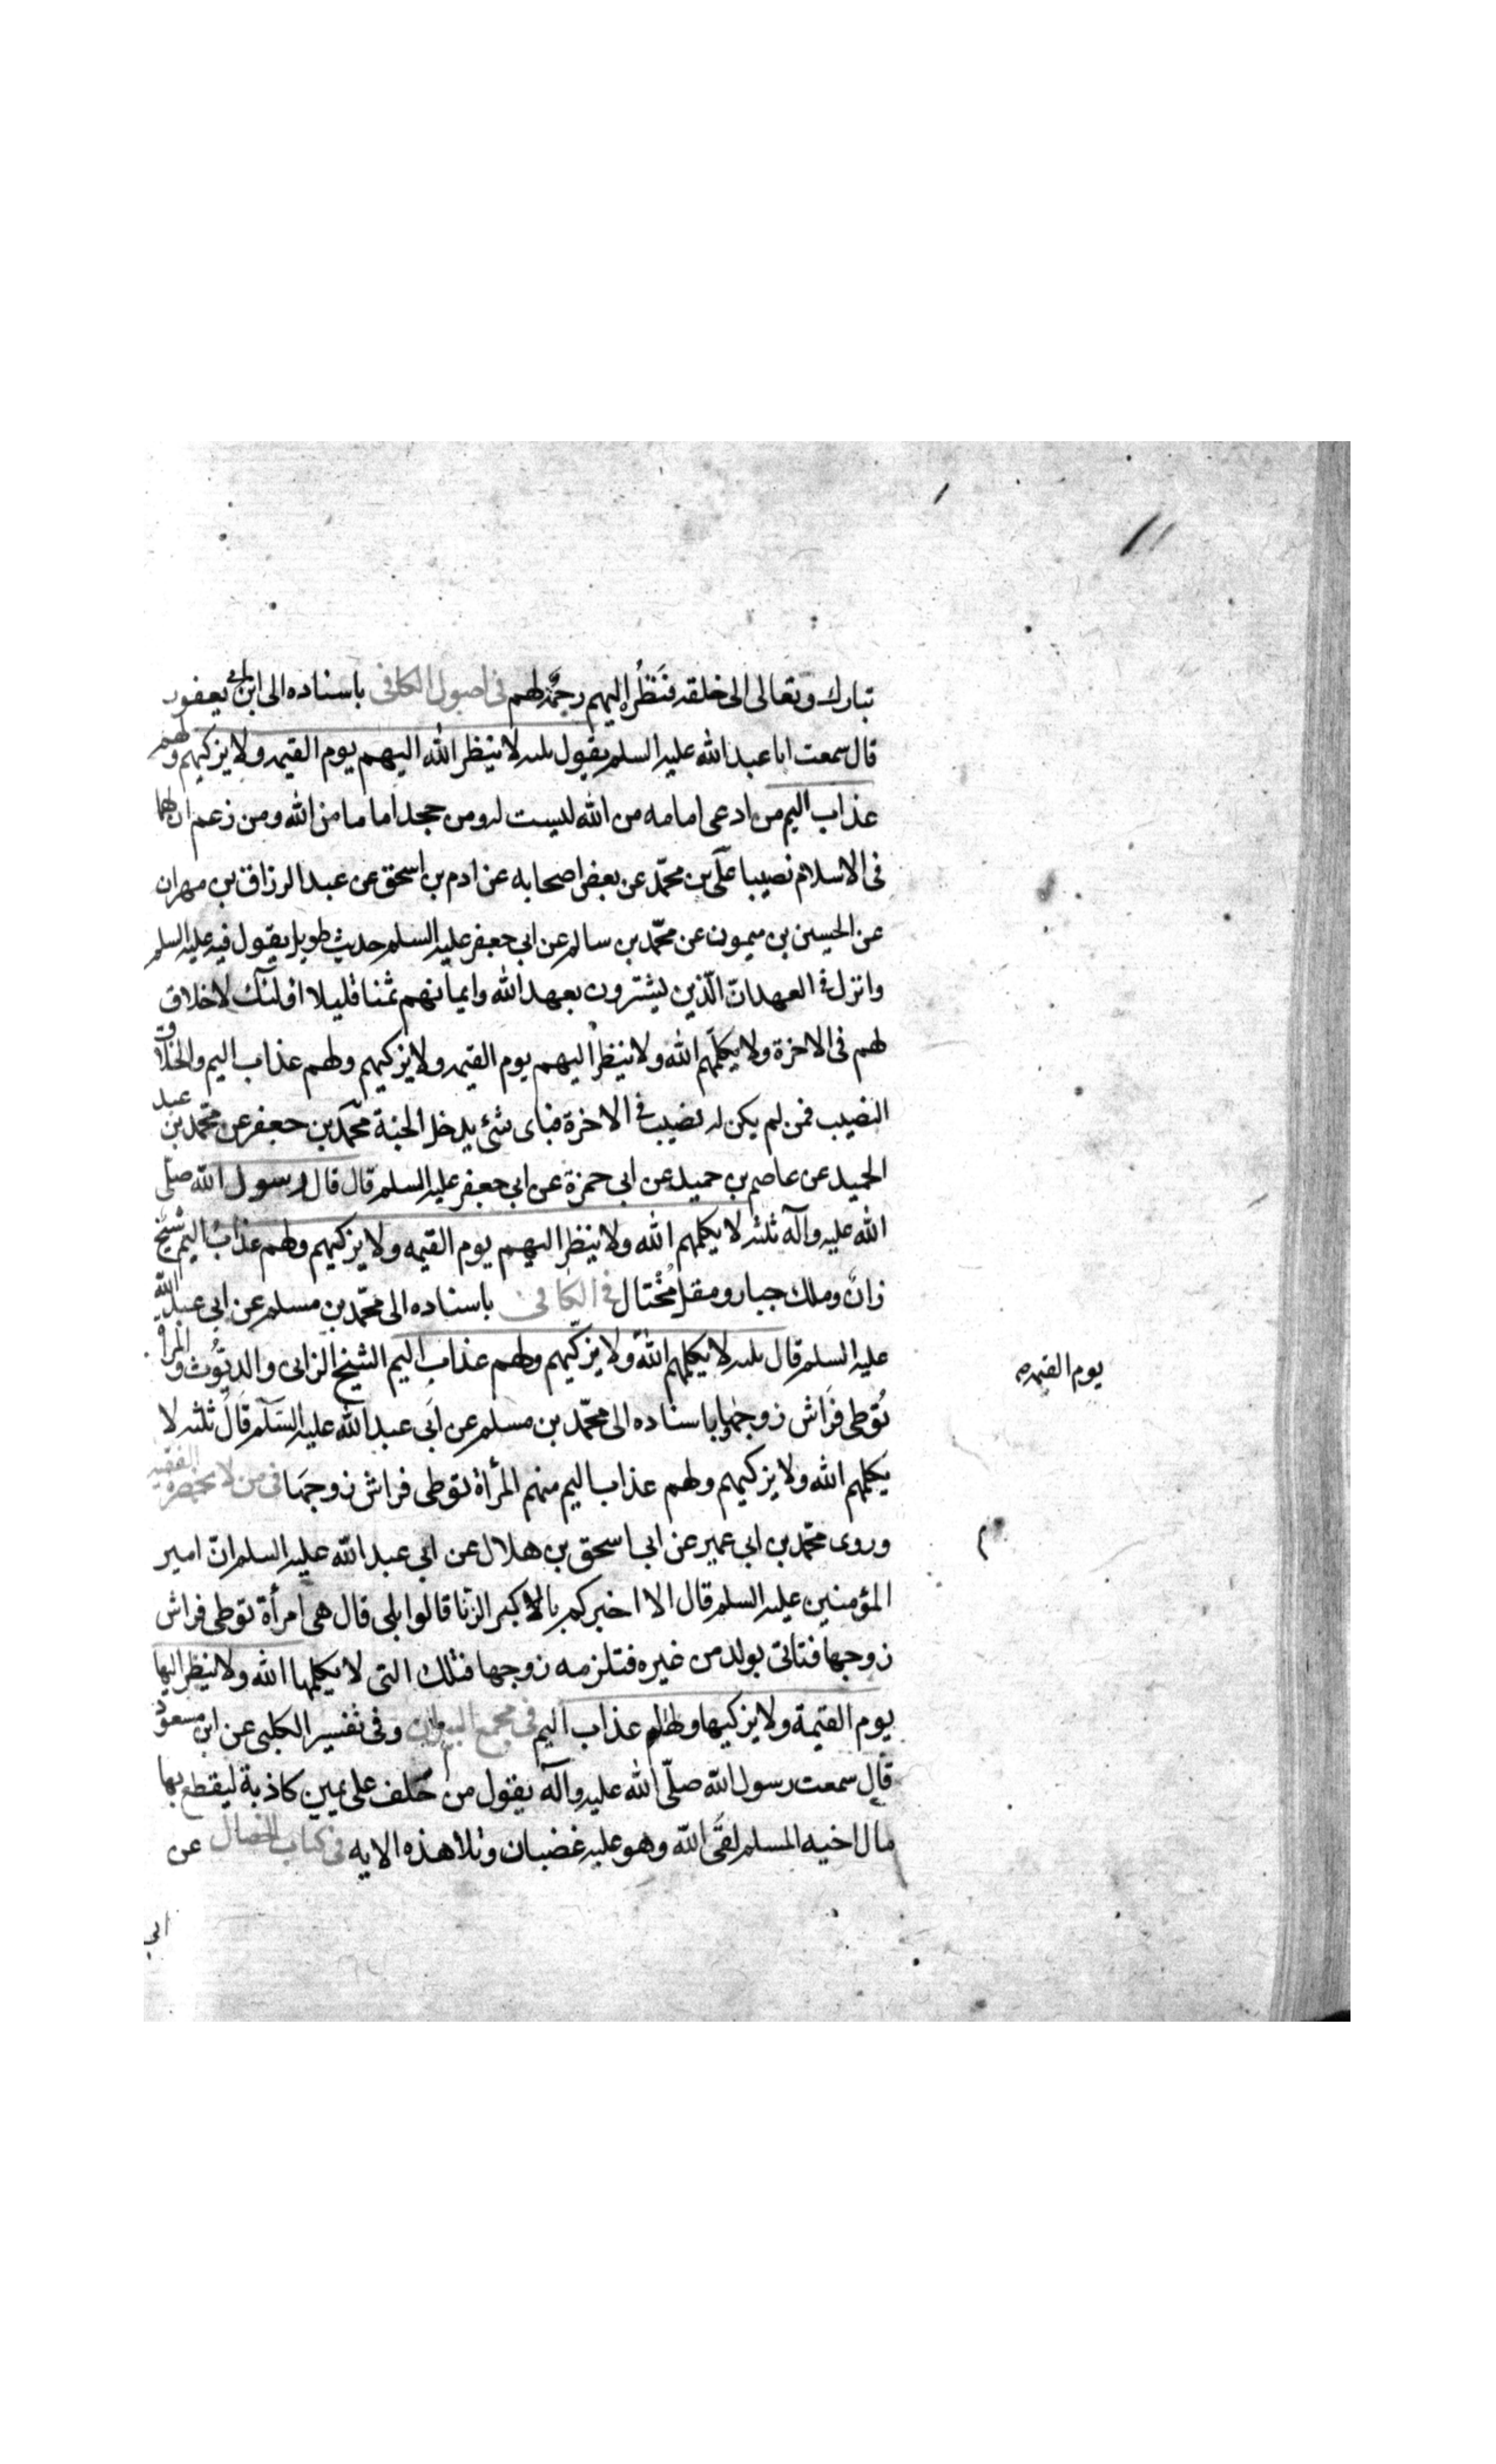 تبارك وتعالى الى خلقه فنَظَرُه إليهم رحمَة لهم فى اصول الكافى باسناده الى ابن ابى يعفور
قال سمعت ابا عبد الله عليه السلم يقول ثلثه لا ينظر الله اليهم يوم القيمه ولا يزكيهم ولهم
عذاب اليم من ادعى امامه من الله ليست له ومن جحد اماما من الله ومن زعم ان لهما
فى الاسلام نصيبا علّى بن محمّد عن بعض اصحابه عن ادم بن اسحق عن عبد الرزاق بن مهران
عن الحسين بن ميمون عن محمّد بن سالم عن ابى جعفر عليه السلم حديث طويل يقول فيه عليه السلم
وانزل فى العهد انّ الّذين يشترون بعهد الله وايمانهم ثمنا قليلا اولئك لا خلاق
لهم فى الاخرة ولا يكلّمهم الله ولا ينظر اليهم يوم القيمه ولا يزكيهم ولهم عذاب اليم والخلاق
النصيب فمن لم يكن له نصيب فى الاخرة فباى شئ يدخل الجنة محمّد بن جعفر عن محمّد بن عبد
الحميد عن عاصم بن حميد عن ابى حمزة عن ابى جعفر عليه السلم قال قال رسول الله صلّى
الله عليه وآله ثلثه لا يكلمهم الله ولا ينظر اليهم يوم القيمه ولا يزكيهم ولهم عذاب اليم شيخ
زان وملك جبار ومقل مُختال فى الكافى باسناده الى محمّد بن مسلم عن ابى عبد الله
عليه السلم قال ثلثه لا يكلمهم الله ولا يزكّيهم ولهم عذاب اليم الشيخ الزانى والديّوث والمرأة
تُوطى فَراش زوجها باسناده الى محمّد بن مسلم عن ابى عبد الله عليه السّلم قال ثلثه لا
يكلمهم الله ولا يزكيهم ولهم عذاب اليم منهم المرأة توطى فراش زوجها فى من لا يحضره الفقيه
وروى محمّد بن ابى عمير عن ابى اسحق بن هلال عن ابى عبد الله عليه السلم انّ امير
المؤمنين عليه السلم قال الا اخبركم بالاكبر الزنا قالوا بلى قال هى امرأة توطى فراش
زوجها فتاتى بولد من غيره فتلزمه زوجها فتلك التى لا يكلمها الله ولا ينظر اليها
يوم القيمة ولا يزكيها ولها عذاب اليم فى مجمع البيان وفى تفسير الكلبى عن ابن مسعود
قال سمعت رسول الله صلّى الله عليه وآله يقول من حَلف على يمين كاذبة ليقطع بها
مال اخيه المسلم لقى الله وهو عليه غضبان وتلا هذه الايه فى كتاب الخصال عن
ابى
يوم القيمه